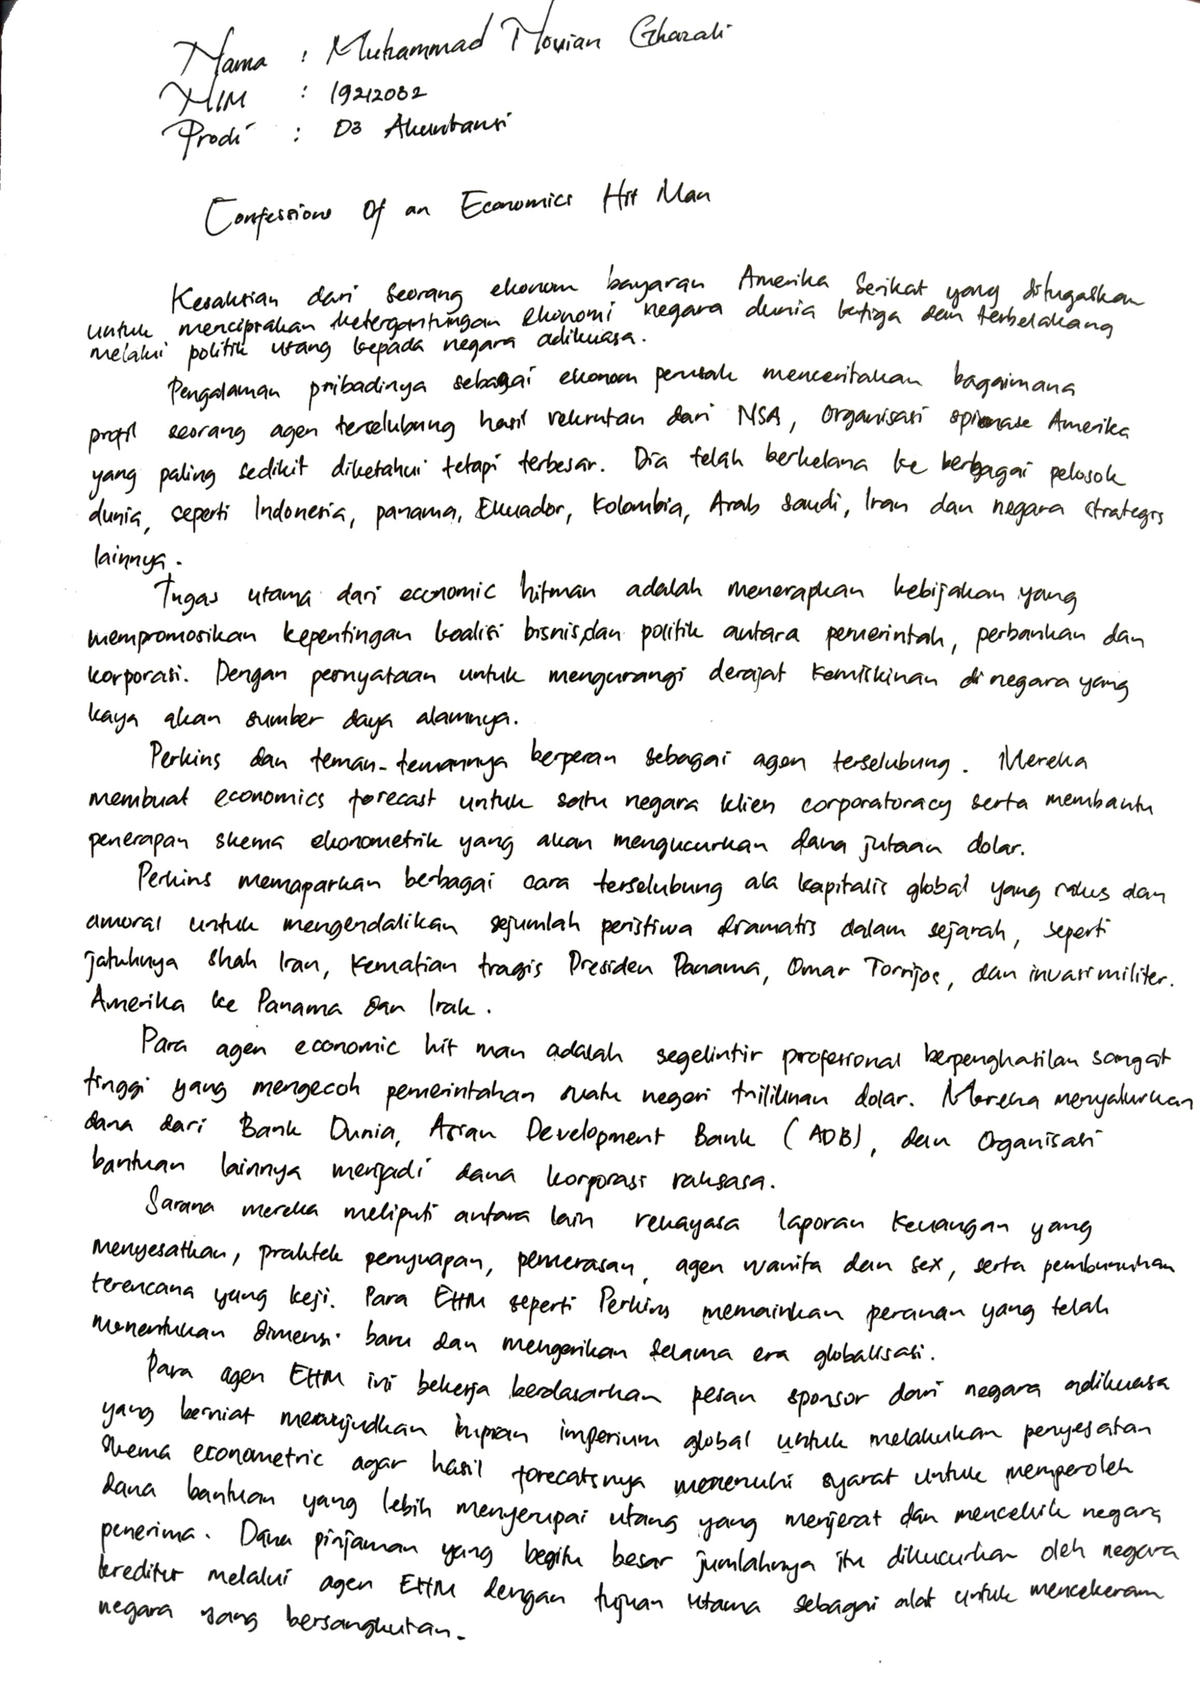 Nama : Muhammad Novian Ghazali
NIM : 19212082
Prodi : D3 Akuntansi
Confessions Of an Economics Hit Man
Kesaksian dari seorang ekonom bayaran Amerika Serikat yang ditugaskan
untuk menciptakan ketergantungan ekonomi negara dunia ketiga dan terbelakang
melalui politik utang kepada negara adikuasa.
Pengalaman pribadinya sebagai ekonom perusak menceritakan bagaimana
profil seorang agen terselubung hasil rekrutan dari NSA, Organisasi spionase Amerika
yang paling sedikit diketahui tetapi terbesar. Dia telah berkelana ke berbagai pelosok
dunia, seperti Indonesia, panama, Ekuador, Kolombia, Arab Saudi, Iran dan negara strategis
lainnya.
Tugas utama dari economic hitman adalah menerapkan kebijakan yang
mempromosikan kepentingan koalisi bisnis,dan politik antara pemerintah, perbankan dan
korporasi. Dengan pernyataan untuk mengurangi derajat kemiskinan di negara yang
kaya akan sumber daya alamnya.
Perkins dan teman-temannya berperan sebagai agen terselubung. Mereka
membuat economics forecast untuk satu negara klien corporatoracy serta membantu
penerapan skema ekonometrik yang akan mengucurkan dana jutaan dolar.
Perkins memaparkan berbagai cara terselubung ala kapitalis global yang rakus dan
amoral untuk mengendalikan sejumlah peristiwa dramatis dalam sejarah, seperti
jatuhnya Shah Iran, Kematian tragis Presiden Panama, Omar Torrijos, dan invasi militer.
Amerika ke Panama dan Irak.
Para agen economic hit man adalah segelintir profesional berpenghasilan sangat
tinggi yang mengecoh pemerintahan suatu negeri triliunan dolar. Mereka menyalurkan
dana dari Bank Dunia, Asian Development Bank (ADB), dan Organisasi
bantuan lainnya menjadi dana korporasi raksasa.
Sarana mereka meliputi antara lain rekayasa laporan keuangan yang
menyesatkan, praktek penyuapan, pemerasan, agen wanita dan sex, serta pembunuhan
terencana yang keji. Para EHM seperti Perkins memainkan peranan yang telah
menentukan dimensi baru dan mengerikan selama era globalisasi.
Para agen EHM ini bekerja berdasarkan pesan sponsor dari negara adikuasa
yang berniat mewujudkan impian imperium global untuk melakukan penyesatan
skema econometric agar hasil forecatsnya memenuhi syarat untuk memperoleh
dana bantuan yang lebih menyerupai utang yang menjerat dan mencekik negara
penerima. Dana pinjaman yang begitu besar jumlahnya itu dikucurkan oleh negara
kreditur melalui agen EHM dengan tujuan utama sebagai alat untuk mencekeram
negara yang bersangkutan.